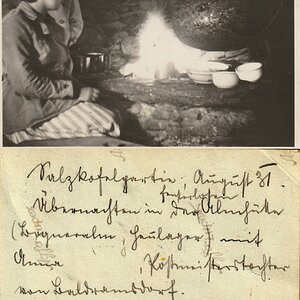 Salzkofelpartie. August 31.
Übernachten in der Almhütte
(Bogneralm, Heulager) mit
Anna Postmeisterstochter
von Baldramsdorf.